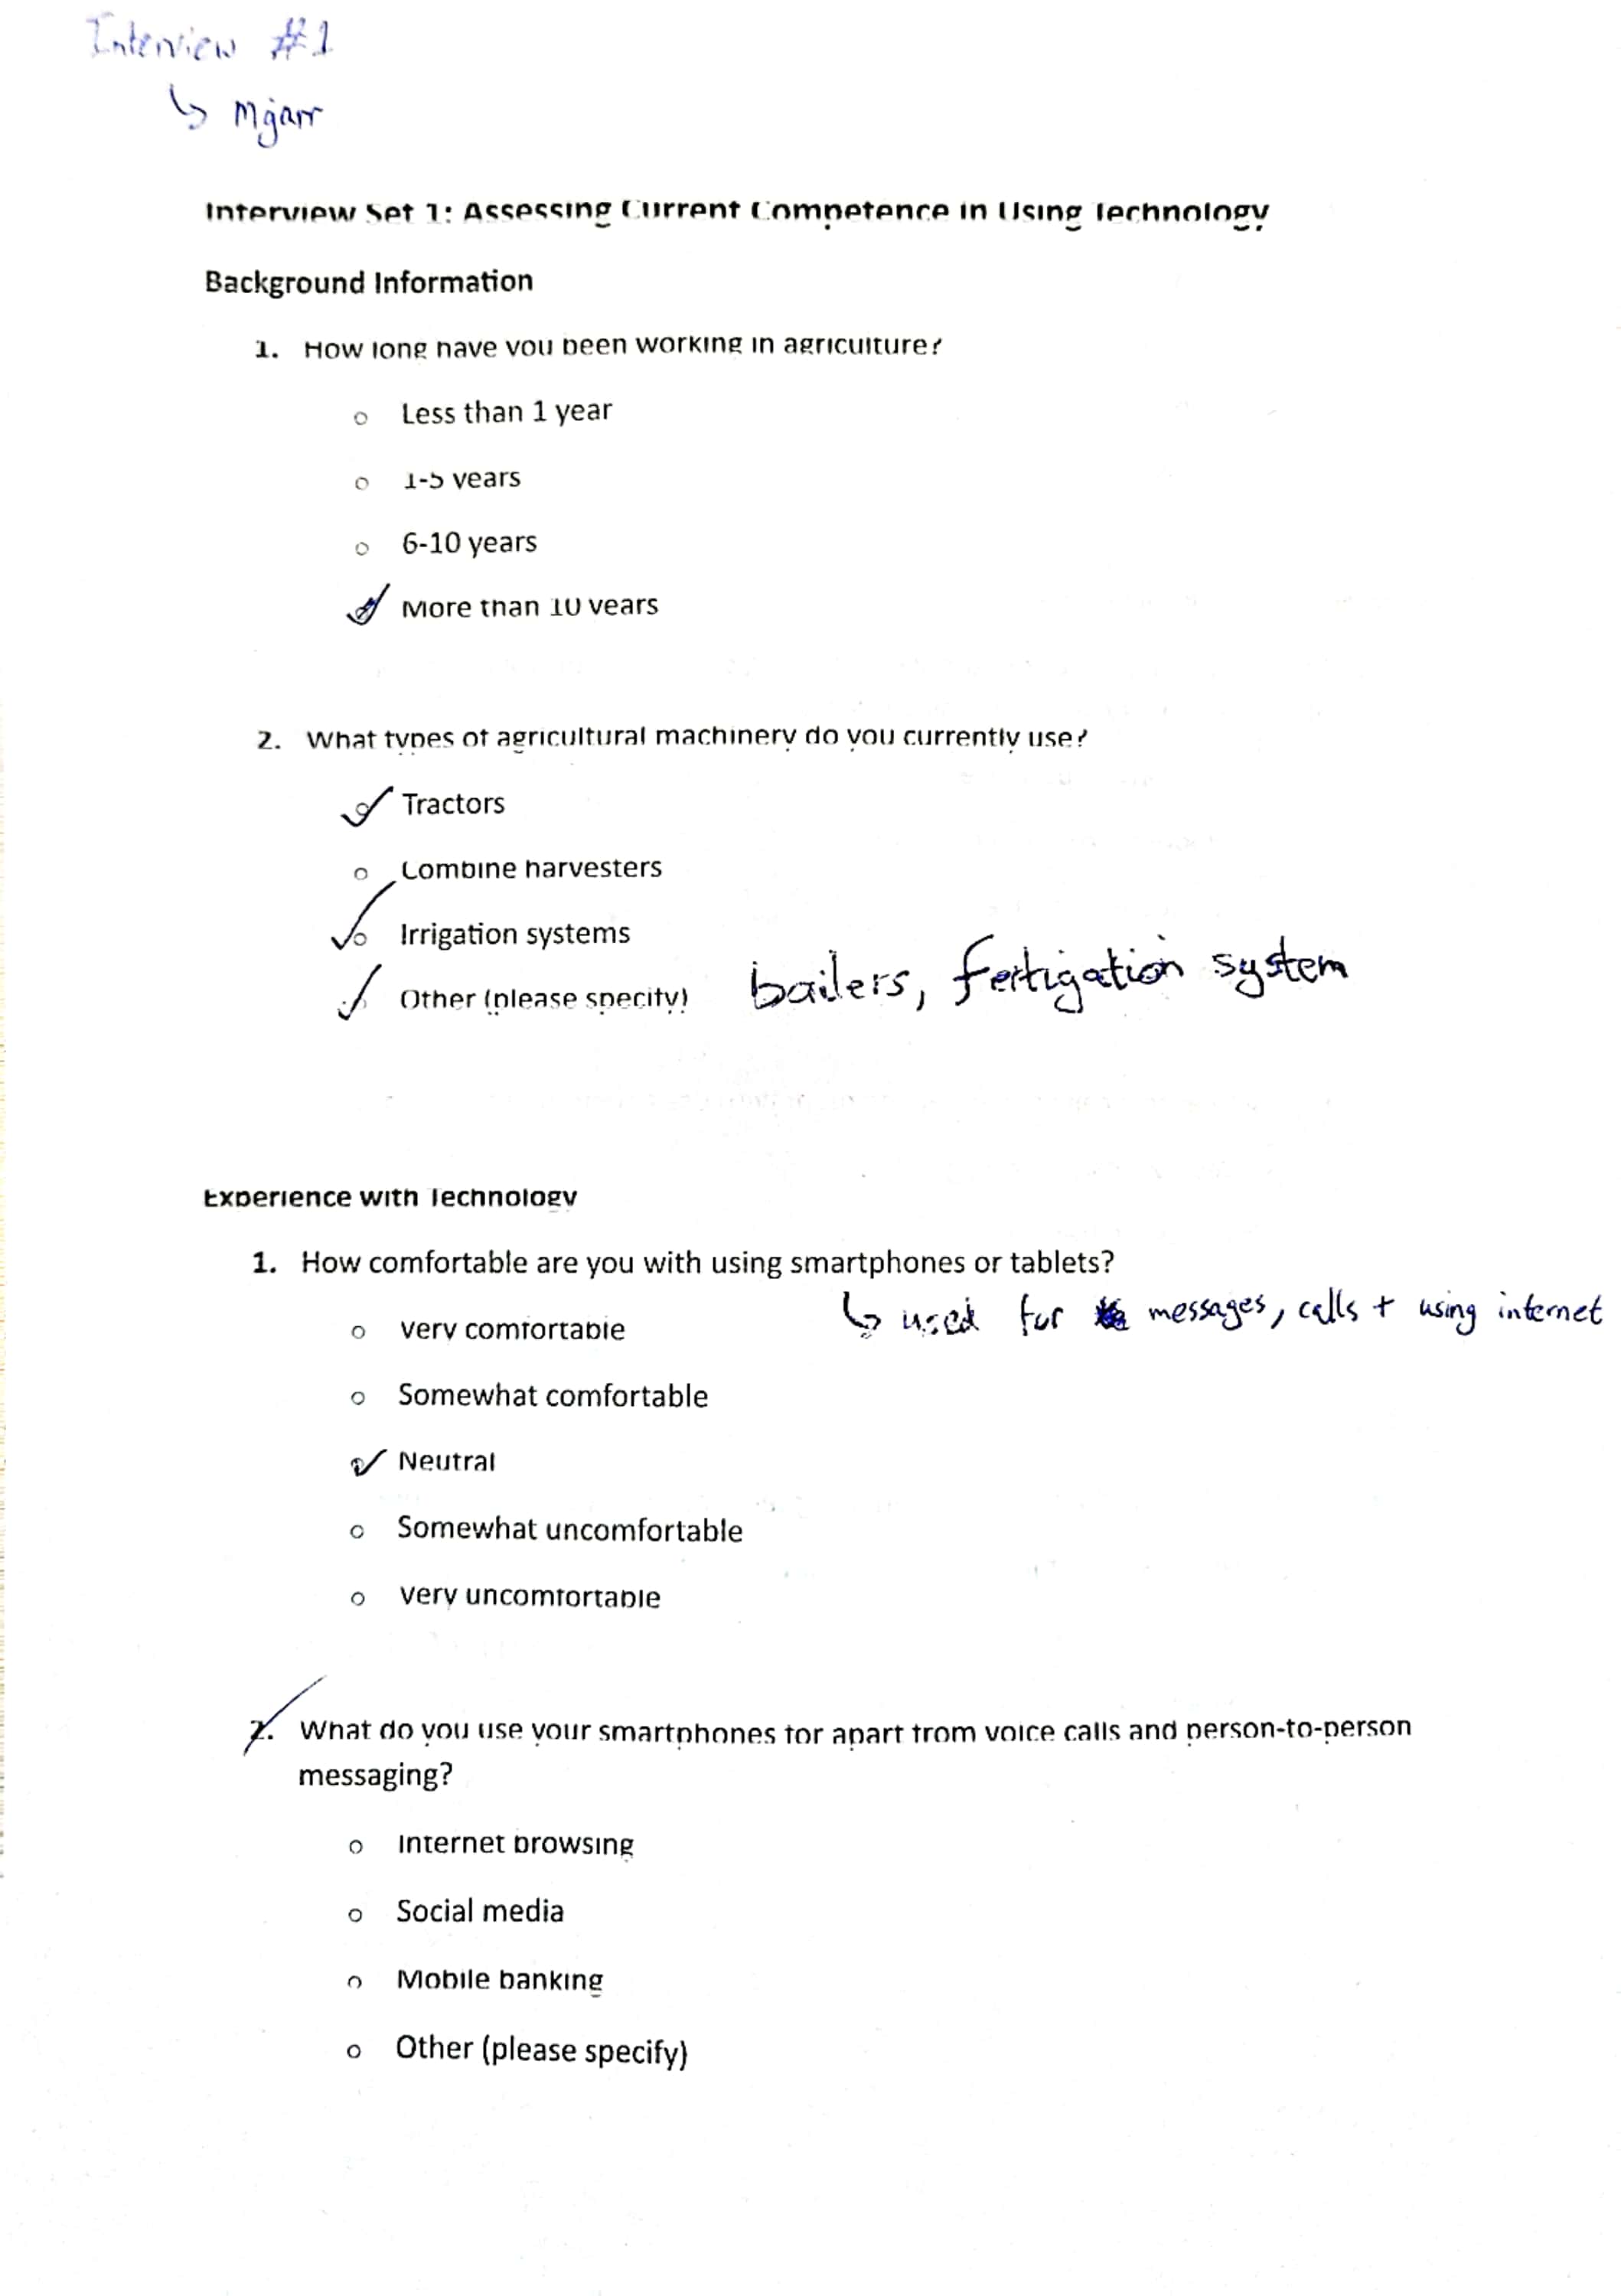 Interview #1
↳ Mġarr
Interview Set 1: Assessing Current Competence in Using Technology
Background Information
1. How long have you been working in agriculture?
o Less than 1 year
o 1-5 years
o 6-10 years
✓ More than 10 years
2. What types of agricultural machinery do you currently use?
✓ Tractors
o Combine harvesters
✓ Irrigation systems
✓ Other (please specify) bailers, fertigation system
Experience with Technology
1. How comfortable are you with using smartphones or tablets?
↳ used for messages, calls + using internet
o Very comfortable
o Somewhat comfortable
✓ Neutral
o Somewhat uncomfortable
o Very uncomfortable
2. What do you use your smartphones for apart from voice calls and person-to-person
messaging?
o Internet browsing
o Social media
o Mobile banking
o Other (please specify)